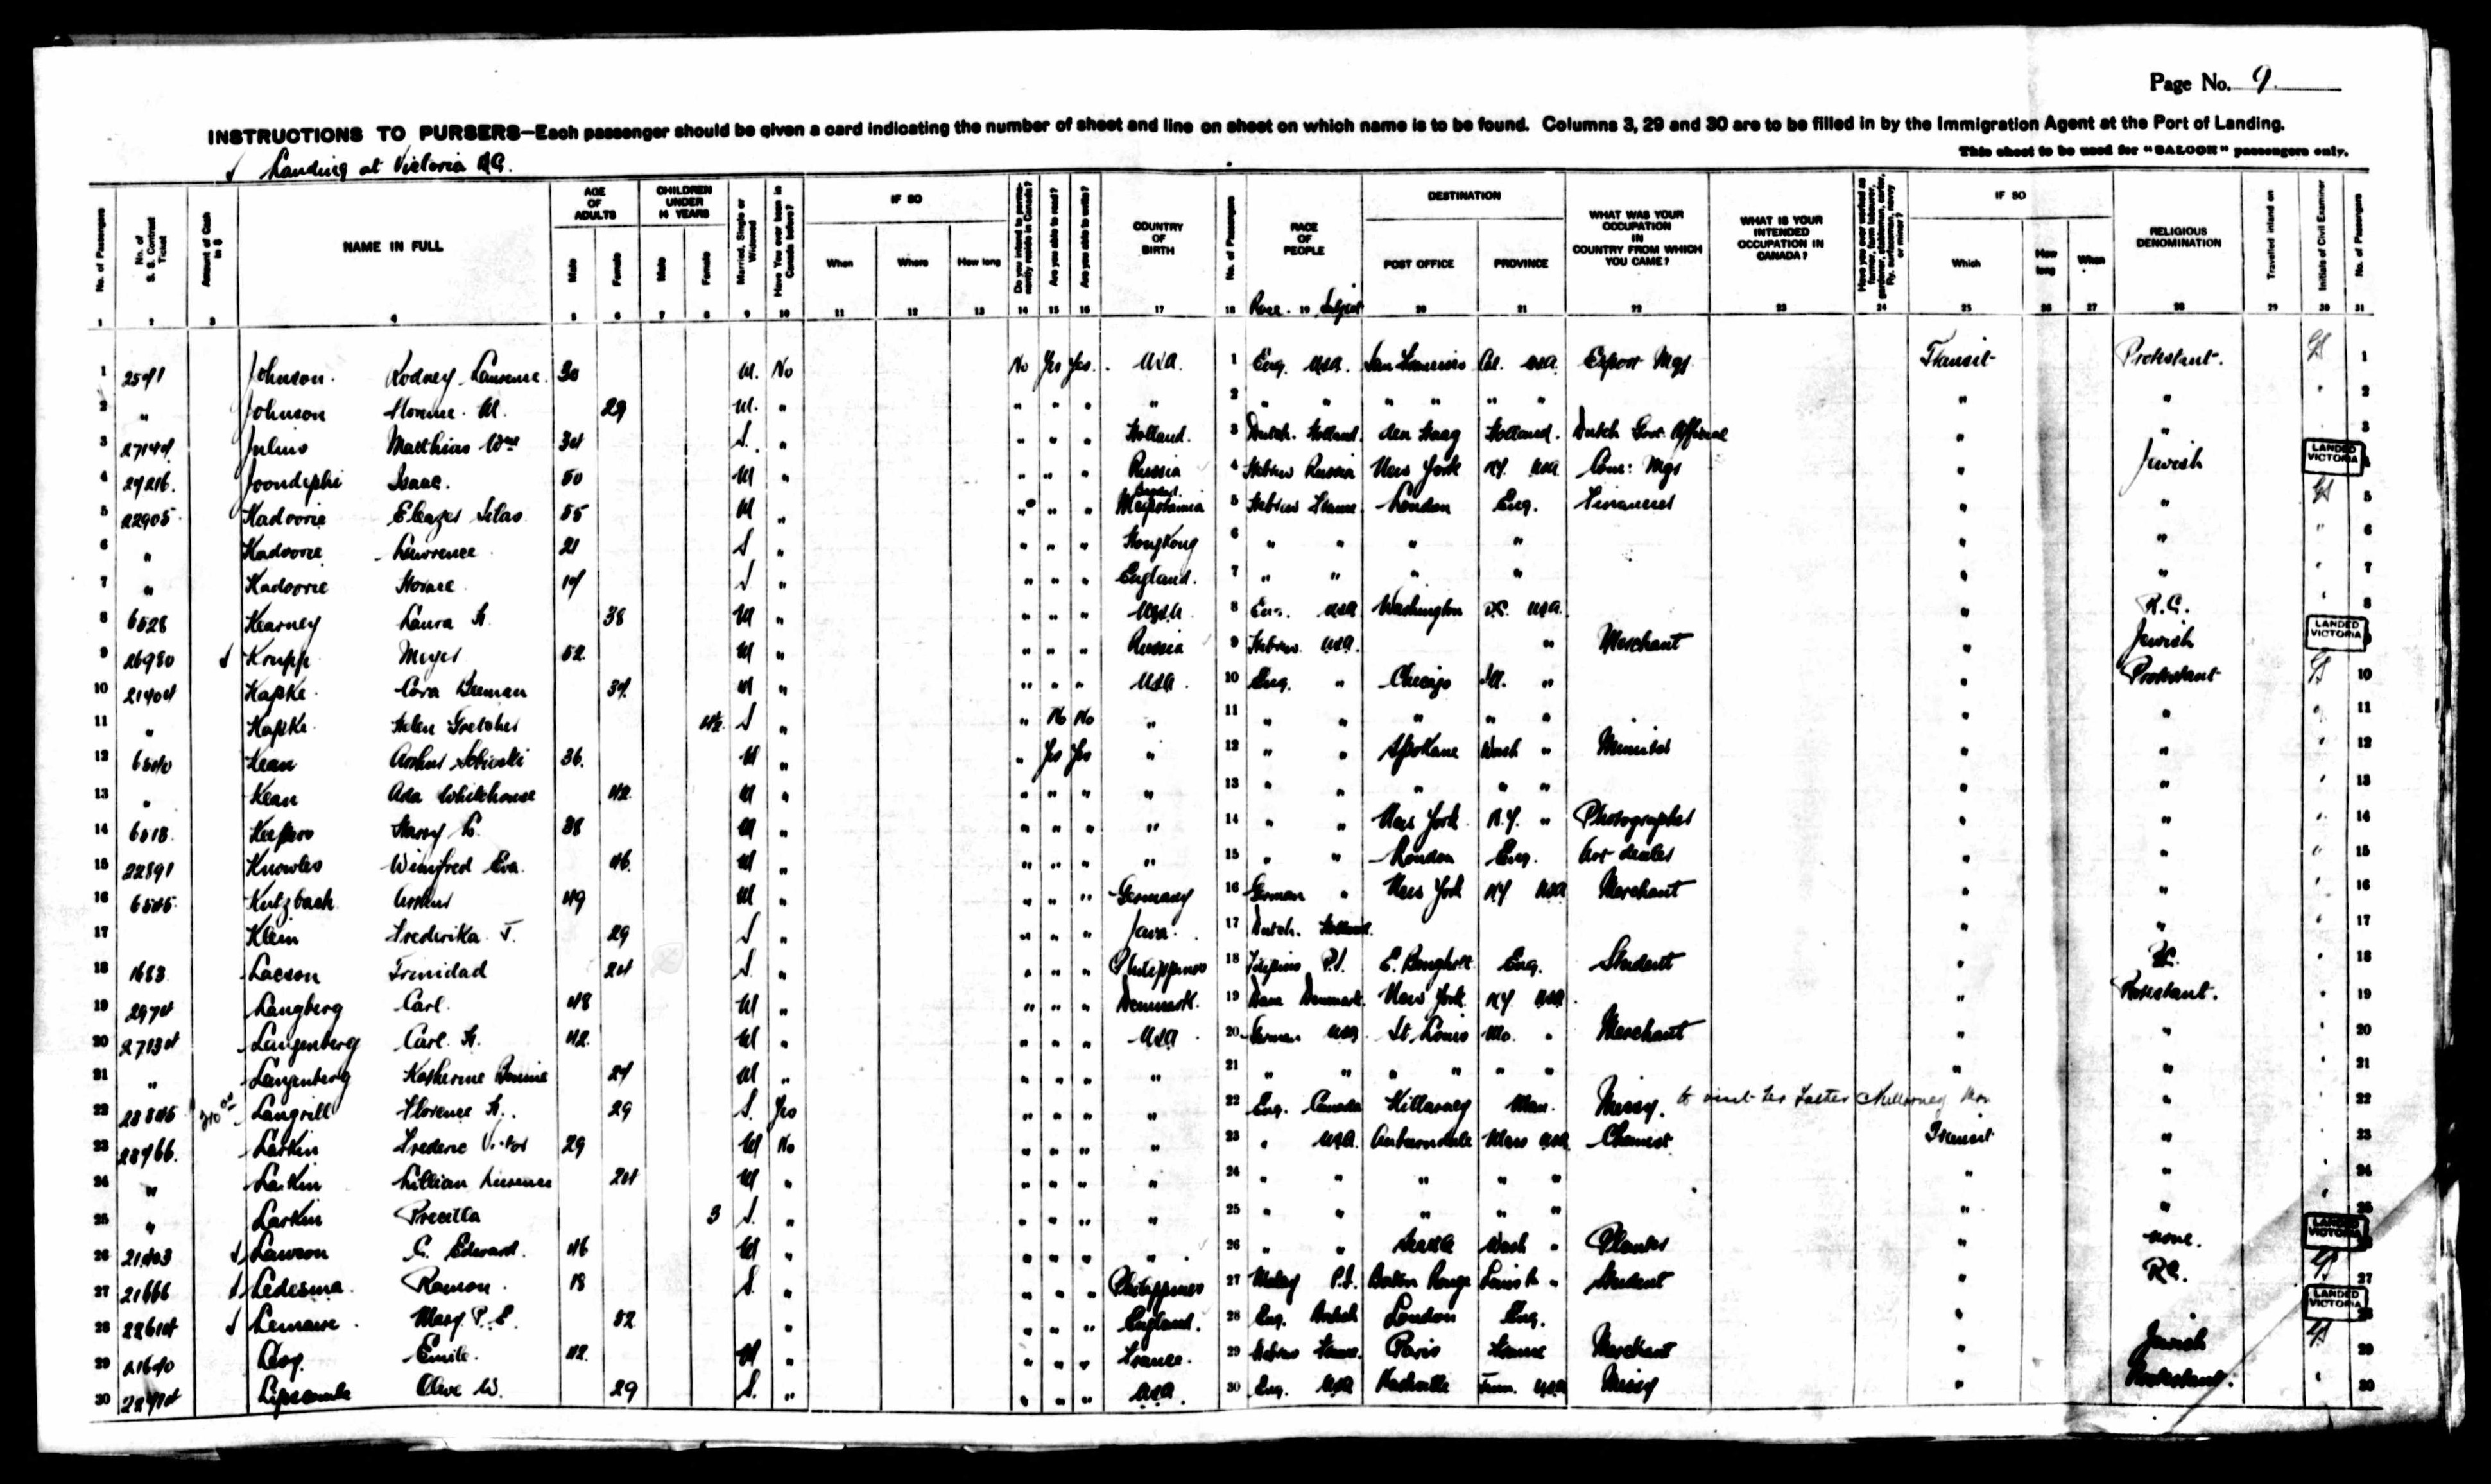 Page No. 9.
INSTRUCTIONS TO PURSERS—Each passenger should be given a card indicating the number of sheet and line on sheet on which name is to be found. Columns 3, 29 and 30 are to be filled in by the Immigration Agent at the Port of Landing.
This sheet to be used for "SALOON" passengers only.
Landing at Victoria
No. of Passengers No. of S. S. Contract Ticket Amount of Cash in $ NAME IN FULL AGE OF ADULTS Male Female CHILDREN UNDER 14 YEARS Male Female Married, Single or Widowed Have You ever been in Canada before? IF SO When Where How long Do you intend to permanently reside in Canada? Are you able to read? Are you able to write? COUNTRY OF BIRTH No. of Passengers RACE OF PEOPLE DESTINATION POST OFFICE PROVINCE WHAT WAS YOUR OCCUPATION IN COUNTRY FROM WHICH YOU CAME? WHAT IS YOUR INTENDED OCCUPATION IN CANADA? IF SO Which How long When RELIGIOUS DENOMINATION Travelled inland on Initials of Civil Examiner No. of Passengers
Race. Subject
1 2 3 4 5 6 7 8 9 10 11 12 13 14 15 16 17 18 19 20 21 22 23 24 25 26 27 28 29 30 31
1 Johnson. Rodney 30 M. No No Yes Yes. USA. 1 Eng. USA. San Francisco Cal. USA. Export Mgr Transit Protestant. 1
2 " Johnson M. 29 M. " " " " " 2 " " " " " " " " 2
3 Julius Matthias Wm 34 S. " " " " Holland. 3 Dutch. Holland. den Haag Holland. Dutch Govt Official " " 3
4 Isaac. 50 M " " " " Russia 4 Hebrew Russia New York NY. USA Mgr " Jewish LANDED VICTORIA
5 22905 Kadoorie Silas 55 M " " " " Mesopotamia 5 Hebrew London Eng. " " 5
6 " Kadoorie Lawrence 21 S " " " " HongKong 6 " " " " " " 6
7 " Kadoorie Horace S " " " " England. 7 " " " " " " 7
8 6528 Kearney Laura H. 38 M " " " " USA 8 Eng. USA Washington D.C. USA. " R.C. 8
9 26980 Krupp 52 M " " " " Russia 9 Hebrew USA. " Merchant " Jewish LANDED VICTORIA
10 Cora M " " " " USA. 10 Eng. " Chicago Ill. " " Protestant 10
11 " Helen S " " No No " 11 " " " " " " " 11
12 Kean 36. M " " Yes Yes " 12 " " Spokane Wash " Minister " " 12
13 " Kean Ada Whitehouse 42. M " " " " " 13 " " " " " " " 13
14 Harry 38 M " " " " " 14 " " New York N.Y. " Photographer " " 14
15 22891 Knowles Winifred Eva. 46. M " " " " " 15 " " London Eng. Art dealer " " 15
16 Kutzbach 49 M " " " " Germany 16 German " New York NY USA Merchant " " 16
17 Klein Frederika 29 S " " " " Java. 17 Dutch. Holland. " " 17
18 1683 Lacson Trinidad 24 S. " " " " Philippines 18 Filipino P.I. Eng. Student " 18
19 2974 Langberg Carl. 48 M " " " " Denmark. 19 Dane Denmark. New York NY. USA. " Protestant. 19
20 Langenberg Carl H. 42. M " " " " USA 20 German USA St Louis Mo. " Merchant " " 20
21 " Langenberg Katherine M " " " " " 21 " " " " " " " " 21
22 Langrill Florence H. 29 S. Yes " " " " 22 Eng. Canada Killarney Man. Missy. to visit her Killarney Man " 22
23 Larkin Frederic Victor 29 M No " " " " 23 " USA. Auburndale Mass USA Chemist Transit " 23
24 " Larkin Lillian 24 M " " " " " 24 " " " " " " " 24
25 " Larkin 3 S. " " " " " 25 " " " " " " " 25
26 Lawson Edward. 46 M " " " " " 26 " " Seattle Wash " Planter " none. LANDED VICTORIA
27 21666 Ledesma. Ramon. 18 S. " " " " Philippines 27 Malay P.I. Baton Rouge " Student " R.C. 27
28 Mary P. E. 52 " " " " England. 28 Eng. British London Eng. " LANDED VICTORIA
29 Emile. 42. M " " " " France. 29 Hebrew France. Paris France Merchant " Jewish 29
30 Lipscomb Olive W. 29 S. " " " " USA. 30 Eng. USA Nashville Tenn. USA Missy " Protestant. 30